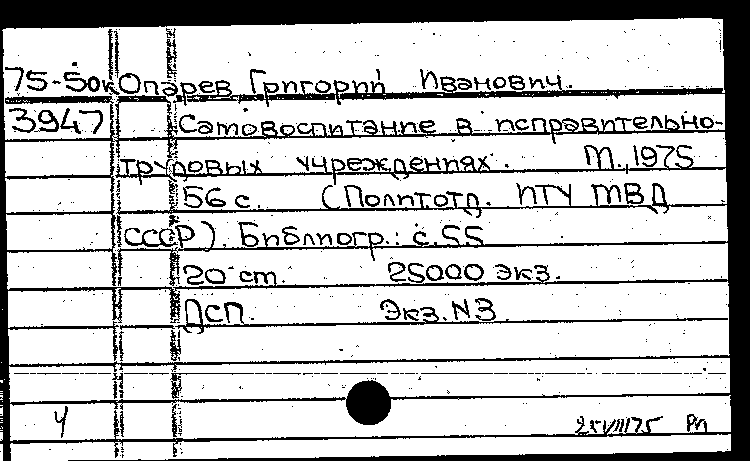 75-50к Опарев, Григорий Иванович.
3947 Самовоспитание в исправительно-
трудовых учреждениях. М., 1975
56 с. (Политотд. ИТУ МВД
СССР). Библиогр.: с.55
20 ст. 25000 экз.
Дсп. Экз. N3.
Ч 25VIII75 Рп